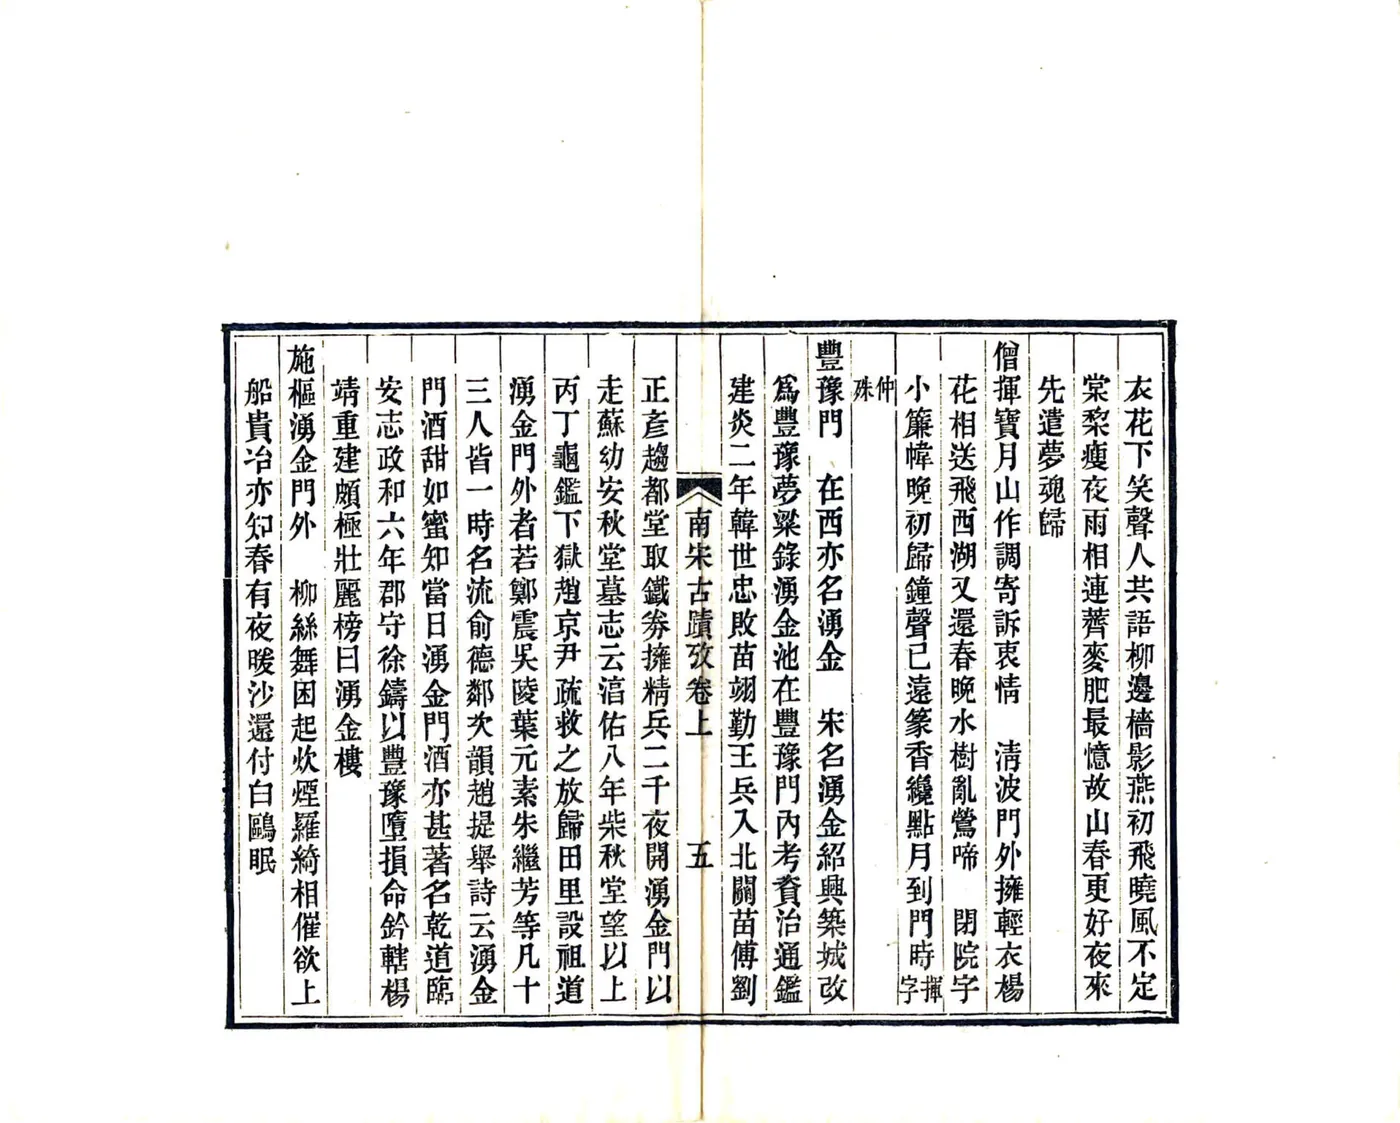 衣花下笑聲人共語柳邊檣影燕初飛曉風不定
棠棃瘦夜雨相連薺麥肥最憶故山春更好夜來
先遣夢魂歸
僧揮寶月山作調寄訴衷情　清波門外擁輕衣楊
花相送飛西湖又還春晚水樹亂鶯啼　閉院宇
小簾幃晚初歸鐘聲已遠篆香纔點月到門時揮字
仲殊
豐豫門　在西亦名湧金　宋名湧金紹興築城改
爲豐豫夢粱錄湧金池在豐豫門內考資治通鑑
建炎二年韓世忠敗苗翊勤王兵入北關苗傅劉
南宋古蹟攷卷上　五
正彥趨都堂取鐵劵擁精兵二千夜開湧金門以
走蘇幼安秋堂墓志云湻佑八年柴秋堂望以上
丙丁龜鑑下獄趙京尹疏救之放歸田里設祖道
湧金門外者若鄭震吳陵葉元素朱繼芳等凡十
三人皆一時名流俞德鄰次韻趙提舉詩云湧金
門酒甜如蜜知當日湧金門酒亦甚著名乾道臨
安志政和六年郡守徐鑄以豐豫墮損命鈐轄楊
靖重建頗極壯麗榜曰湧金樓
施樞湧金門外　柳絲舞困起炊煙羅綺相催欲上
船貴冶亦知春有夜暖沙還付白鷗眠